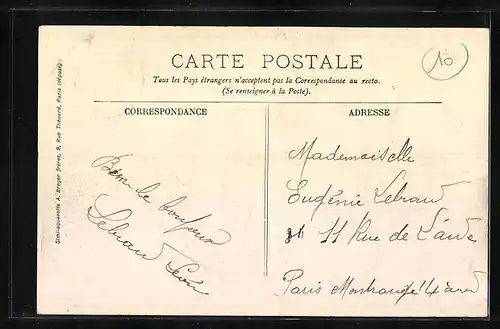 CARTE POSTALE
Tous les Pays étrangers n'acceptent pas la Correspondance au recto.
(Se renseigner à la Poste).
10
CORRESPONDANCE
ADRESSE
Simi-aquarelle A. Breger frères, 9, Rue Thénard, Paris (déposé).
Bien le bonjour
Lebraud Léon
Mademoiselle
Eugénie Lebraud
11 Rue de
Paris Montrouge 14